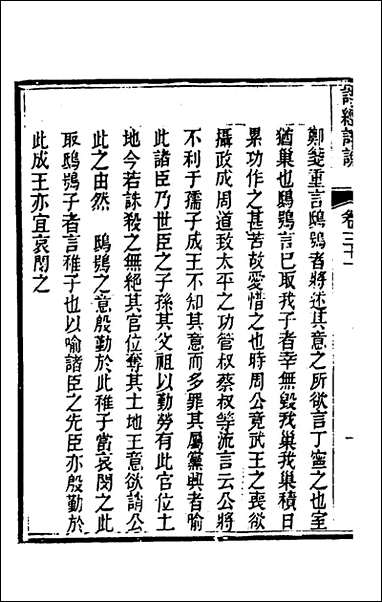 詩經詳說
卷三十一
一
鄭箋重言鴟鴞者將述其意之所欲言丁寧之也室
猶巢也鴟鴞言已取我子者幸無毀我巢我巢積日
累功作之甚苦故愛惜之也時周公竟武王之喪欲
攝政成周道致太平之功管叔蔡叔等流言云公將
不利于孺子成王不知其意而多罪其屬黨興者喻
此諸臣乃世臣之子孫其父祖以勤勞有此官位土
地今若誅殺之無絕其官位奪其土地王意欲誚公
此之由然　鴟鴞之意殷勤於此稚子當哀閔之此
取鴟鴞子者言稚子也以喻諸臣之先臣亦殷勤於
此成王亦宜哀閔之